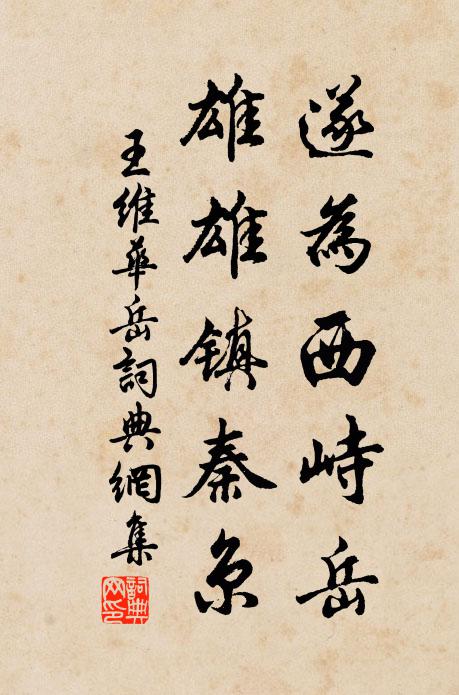 遂為西峙岳
雄雄镇秦京
王維華岳詞典網集
詞典网印